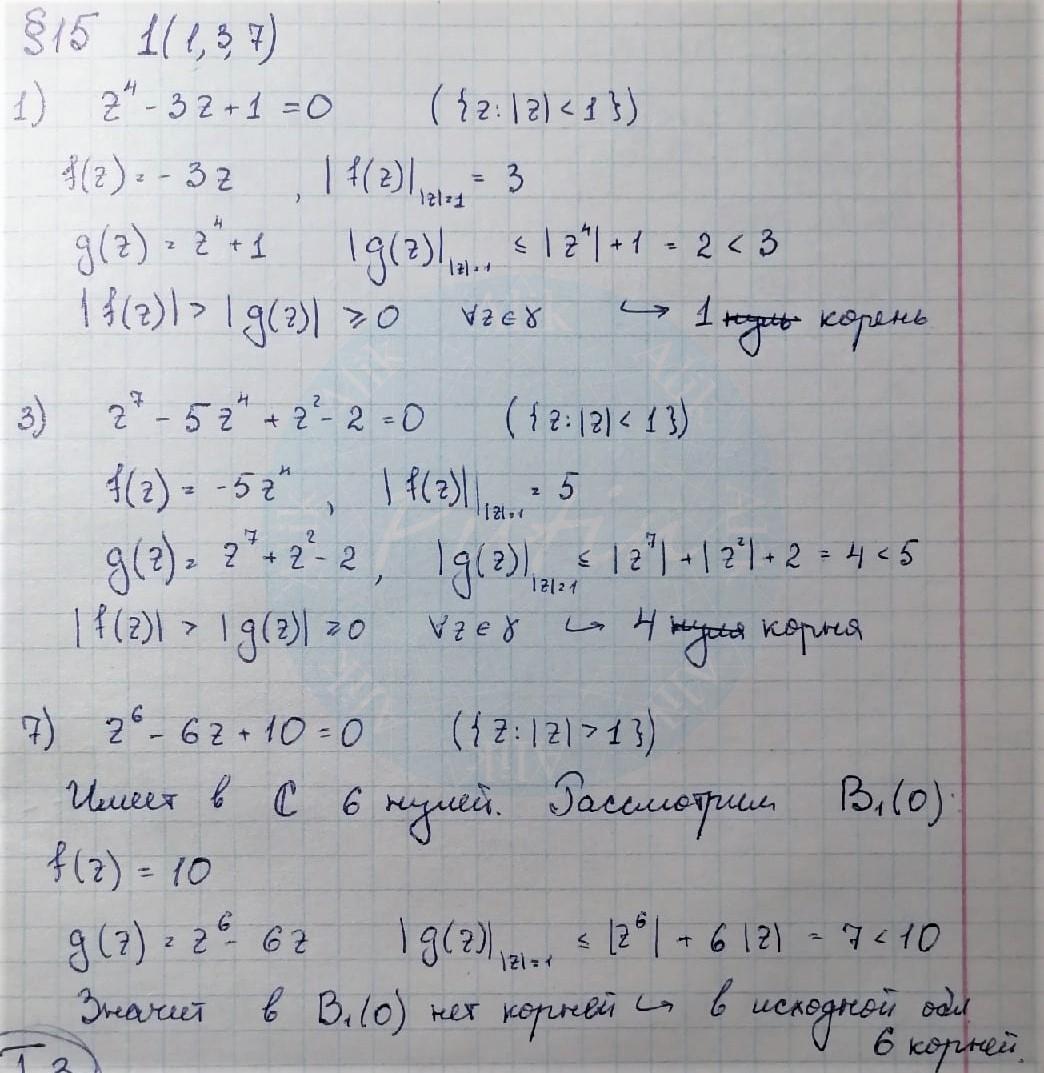 §15 1(1,3,7)
1) z⁴ - 3z + 1 = 0 ({z: |z| < 1})
f(z) = - 3z , |f(z)|_{|z|=1} = 3
g(z) = z⁴ + 1 |g(z)|_{|z|=1} ≤ |z⁴| + 1 = 2 < 3
|f(z)| > |g(z)| ≥ 0 ∀z∈γ ↪ 1 ~~нуль~~ корень
3) z⁷ - 5z⁴ + z² - 2 = 0 ({z: |z| < 1})
f(z) = -5z⁴ , |f(z)||_{|z|=1} = 5
g(z) = z⁷ + z² - 2 , |g(z)|_{|z|=1} ≤ |z⁷| + |z²| + 2 = 4 < 5
|f(z)| > |g(z)| ≥ 0 ∀z∈γ ↪ 4 ~~нуля~~ корня
7) z⁶ - 6z + 10 = 0 ({z: |z| > 1})
Имеет в ℂ 6 нулей. Рассмотрим B₁(0):
f(z) = 10
g(z) = z⁶ - 6z |g(z)|_{|z|=1} ≤ |z⁶| + 6|z| = 7 < 10
Значит в B₁(0) нет корней ↪ в исходной обл
6 корней.